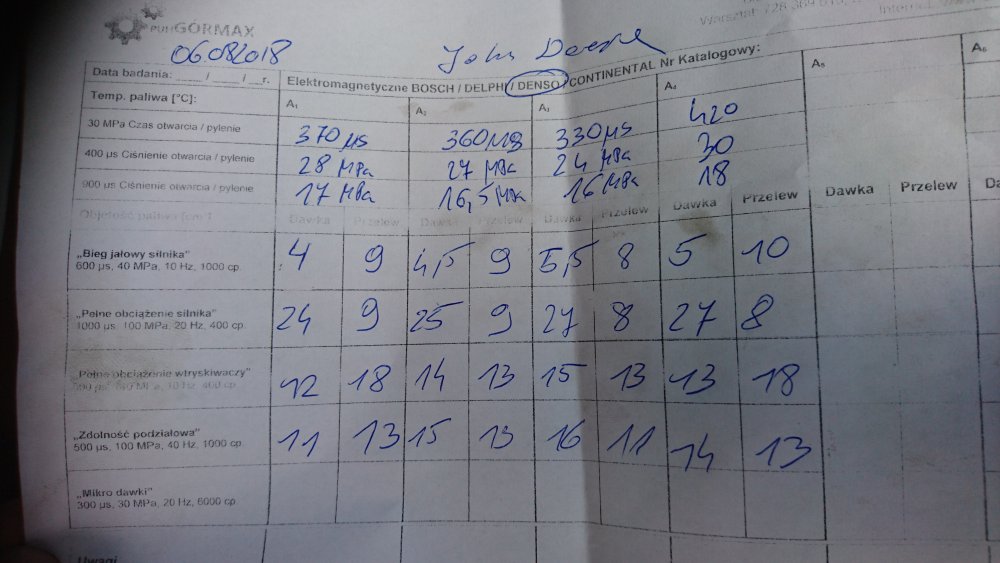 PUH GÓRMAX
06.082018
John Deere
Data badania: ____ / ____ / __r.
Elektromagnetyczne BOSCH / DELPHI / DENSO / CONTINENTAL Nr Katalogowy:
Temp. paliwa [°C]: A₁ A₂ A₃ A₄ A₅ A₆
30 MPa Czas otwarcia / pylenie 370 µs 360 µs 330 µs 420
400 µs Ciśnienie otwarcia / pylenie 28 MPa 27 MPa 24 MPa 30
900 µs Ciśnienie otwarcia / pylenie 17 MPa 16,5 MPa 16 MPa 18
Objętość paliwa [cm Dawka Przelew Dawka Przelew Dawka Przelew Dawka Przelew Dawka Przelew
„Bieg jałowy silnika"
600 µs, 40 MPa, 10 Hz, 1000 cp. 4 9 4,5 9 5,5 8 5 10
„Pełne obciążenie silnika"
1000 µs, 100 MPa, 20 Hz, 400 cp. 24 9 25 9 27 8 27 8
„Pełne obciążenie wtryskiwaczy"
10 Hz, 400 cp. 12 18 14 13 15 13 13 18
„Zdolność podziałowa"
500 µs, 100 MPa, 40 Hz, 1000 cp. 11 13 15 13 16 11 14 13
„Mikro dawki"
300 µs, 30 MPa, 20 Hz, 6000 cp.
Uwagi